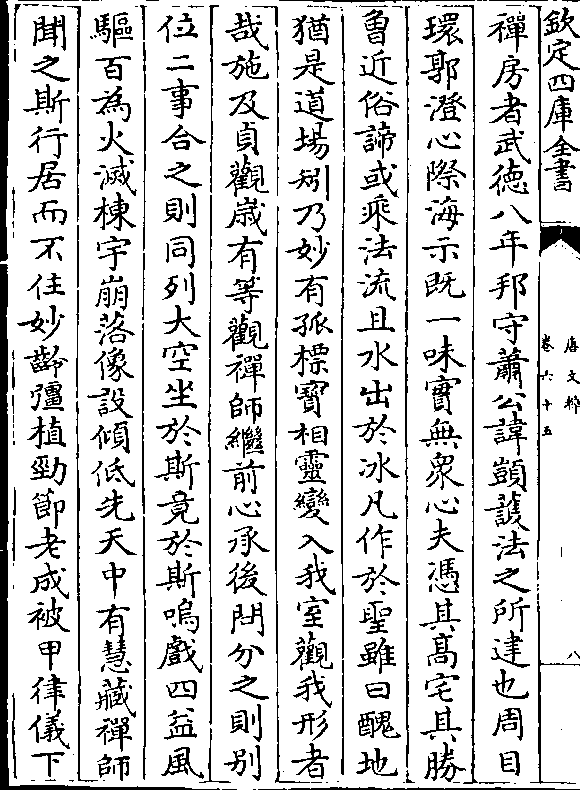 欽定四庫全書
唐文粹
卷六十五
八
禪房者武德八年邦守蕭公諱顗護法之所建也周目
環郭澄心際海示既一味實無衆心夫憑其髙宅其勝
魯近俗諦或乘法流且水出於冰凡作於聖雖曰醜地
猶是道場矧乃妙有孤標寳相靈變入我室觀我形者
哉施及貞觀嵗有等觀禪師繼前心承後問分之則别
位二事合之則同列大空坐於斯竟於斯嗚戲四益風
驅百為火滅棟宇崩落像設傾低先天中有慧藏禪師
聞之斯行居而不住妙齡彊植勁節老成被甲律儀下